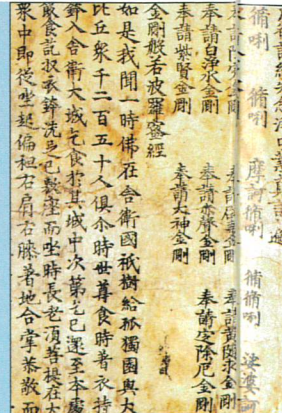 脩唎 脩唎 摩訶脩唎 脩脩唎 娑婆訶
奉請除灾金剛 奉請辟毒金剛 奉請黄随求金剛
奉請白淨水金剛 奉請赤聲金剛 奉請定除厄金剛
奉請紫賢金剛 奉請大神金剛
金剛般若波羅蜜經
如是我聞一時佛在舍衛國祇樹給孤獨園與大
比丘衆千二百五十人俱尒時世尊食時着衣持
鉢入舍衛大城乞食於其城中次第乞已還至本處
飯食訖收衣鉢洗足已敷座而坐時長老須菩提在大
衆中即從坐起偏袒右肩右膝著地合掌恭敬而